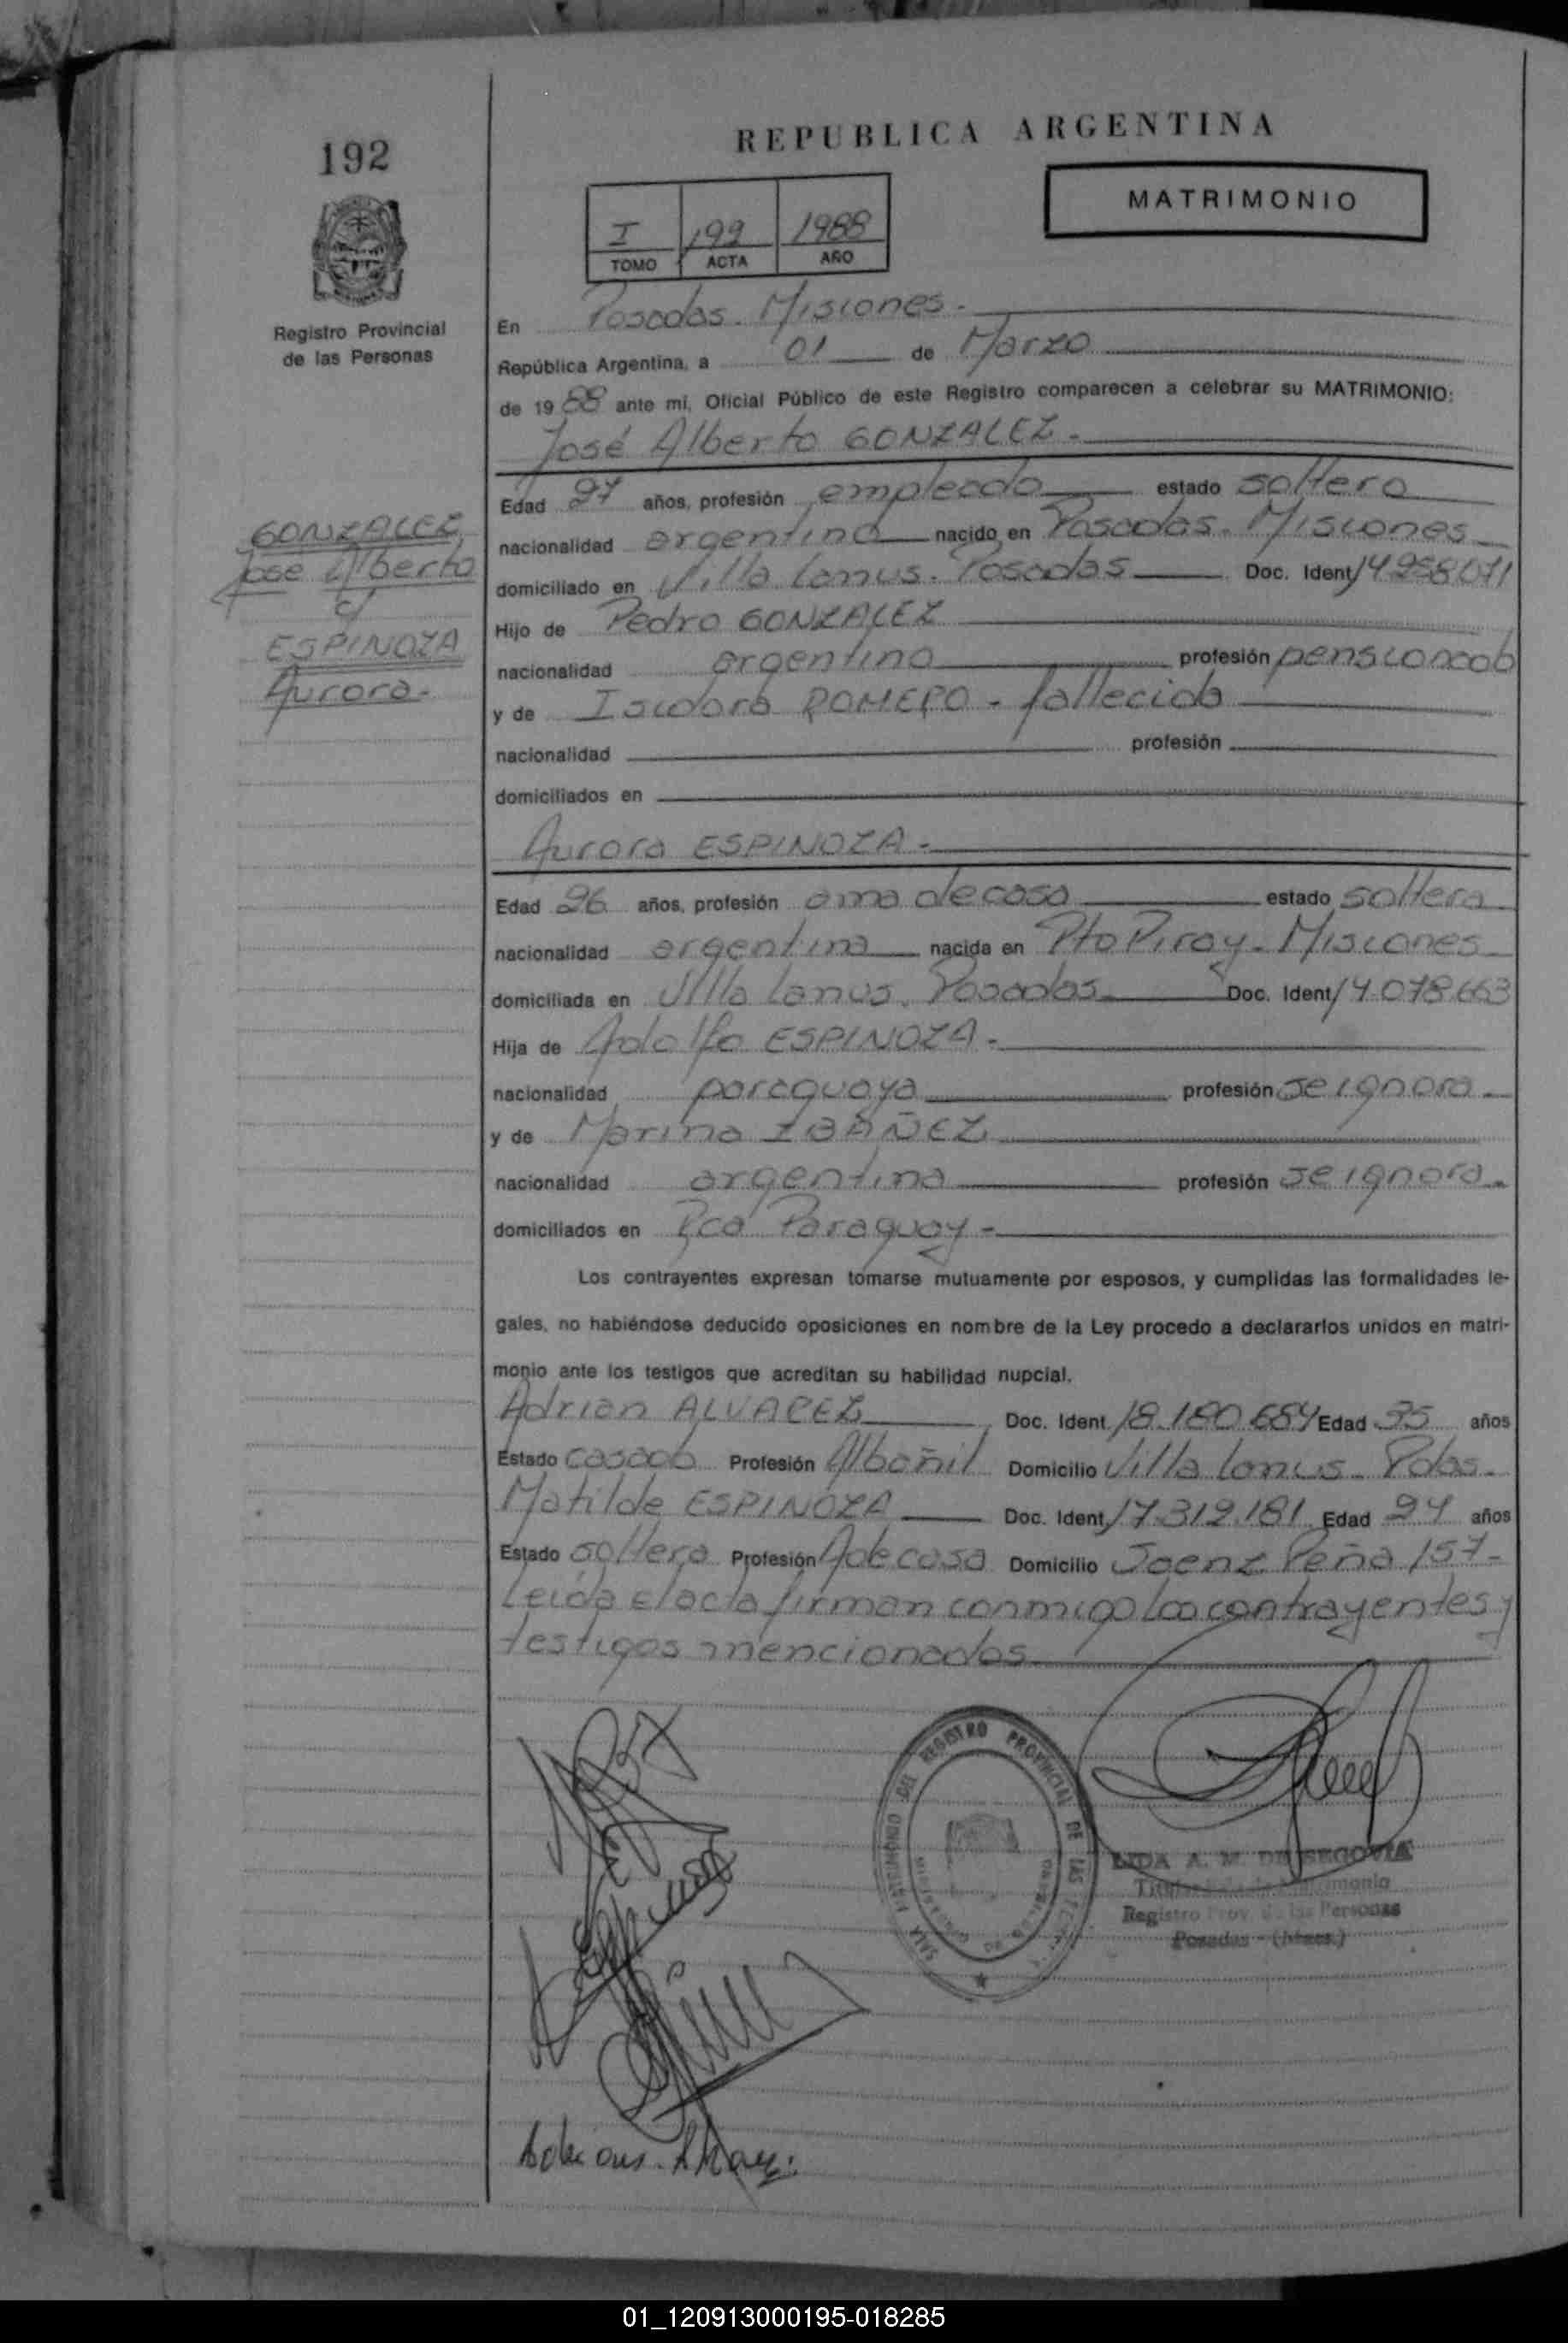 REPUBLICA ARGENTINA
192
MATRIMONIO
I 192 1988
TOMO ACTA AÑO
Registro Provincial
de las Personas
En Posadas. Misiones.
República Argentina, a 01 de Marzo
de 1988 ante mi, Oficial Público de este Registro comparecen a celebrar su MATRIMONIO:
José Alberto GONZALEZ.
Edad 27 años, profesión empleado estado soltero
nacionalidad argentina nacido en Posadas. Misiones
domiciliado en Villa Lanus. Posadas Doc. Ident 14.258.071
Hijo de Pedro GONZALEZ
nacionalidad argentina profesión pensionado
y de Isidora ROMERO - fallecida
nacionalidad profesión
domiciliados en
GONZALEZ,
José Alberto
c/
ESPINOZA
Aurora.
Aurora ESPINOZA.
Edad 26 años, profesión ama de casa estado soltera
nacionalidad argentina nacida en Pto Piray. Misiones
domiciliada en Villa Lanus. Posadas Doc. Ident 14.078.663
Hija de Adolfo ESPINOZA.
nacionalidad paraguaya profesión se ignora
y de Marina IBAÑEZ
nacionalidad argentina profesión se ignora
domiciliados en Rca Paraguay.
Los contrayentes expresan tomarse mutuamente por esposos, y cumplidas las formalidades le-
gales, no habiéndose deducido oposiciones en nombre de la Ley procedo a declararlos unidos en matri-
monio ante los testigos que acreditan su habilidad nupcial.
Adrian ALVAREZ Doc. Ident 18.180.684 Edad 35 años
Estado casado Profesión Albañil Domicilio Villa Lanus. Pdas.
Matilde ESPINOZA Doc. Ident 17.312.181 Edad 24 años
Estado soltera Profesión A de casa Domicilio Saenz Peña 157
Leida el acta firman conmigo los contrayentes y
testigos mencionados
SALA MATRIMONIO DEL REGISTRO PROVINCIAL DE LAS
LIDA A. M. DE SEGOVIA
Registro Prov. de las Personas
Posadas - (Mnes.)
01_120913000195-018285